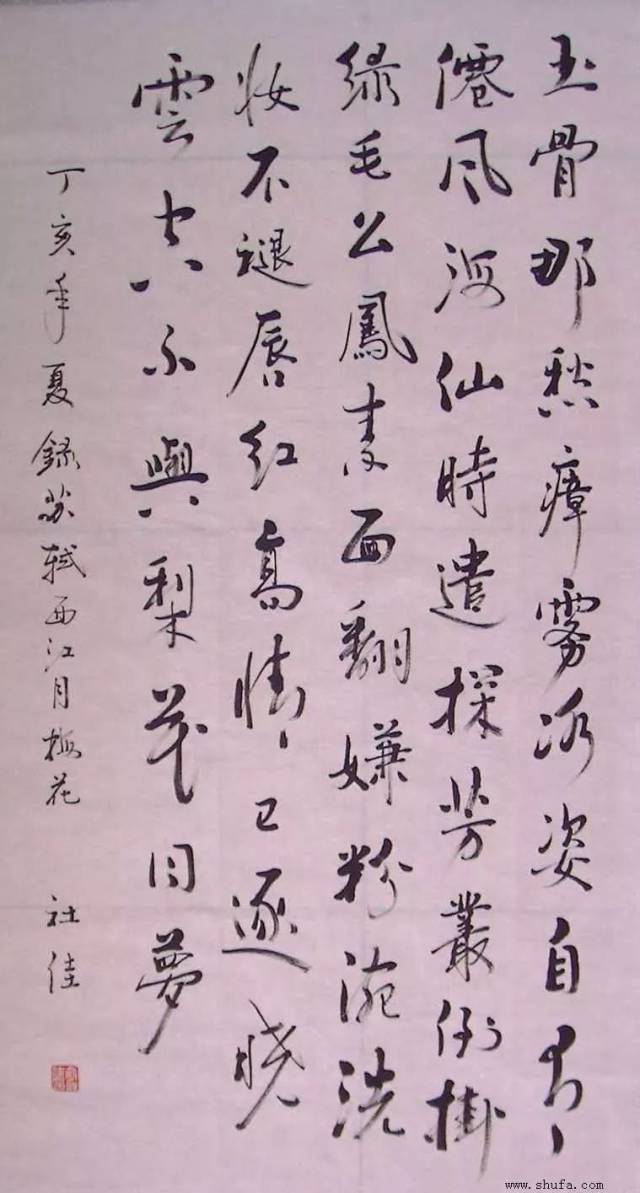 玉骨那愁瘴雾冰姿自有
僊风海仙時遣探芳叢倒掛
绿毛么鳳素面翻嫌粉涴洗
妆不褪唇红高情已逐晓
雲空不與梨花同夢
丁亥年夏録苏轼西江月梅花 社佳
www.shufa.com